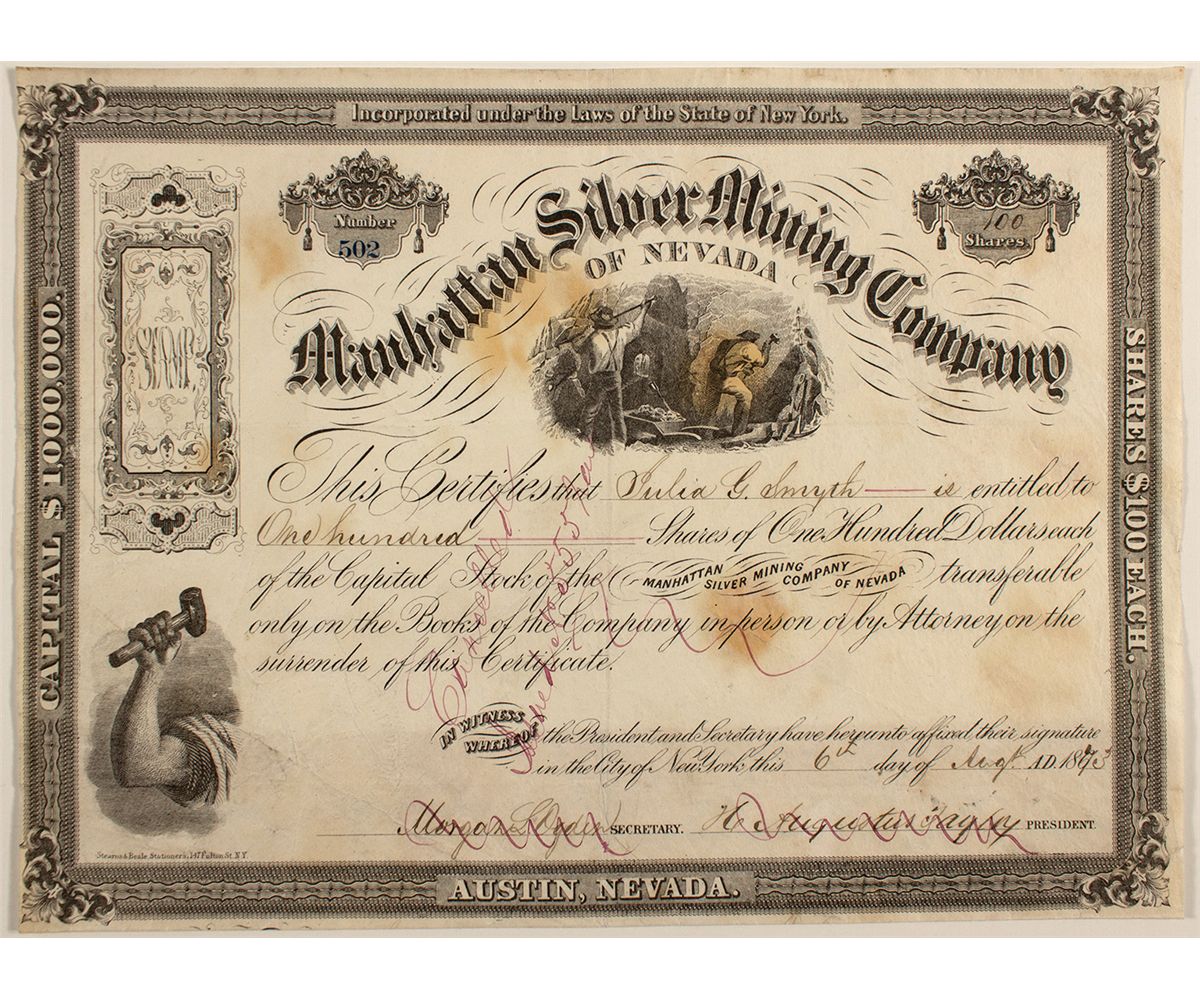 Incorporated under the Laws of the State of New York.
Number
502
100
Shares.
Manhattan Silver Mining Company
OF NEVADA
STAMP.
CAPITAL $1000.000.
SHARES $100 EACH.
This Certifies that Julia G. Smyth is entitled to
One hundred Shares of One Hundred Dollars each
of the Capital Stock of the MANHATTAN SILVER MINING COMPANY OF NEVADA transferable
only on the Books of the Company in person or by Attorney on the
surrender of this Certificate.
Cancelled
IN WITNESS WHEREOF the President and Secretary have hereunto affixed their signature
in the City of New York this 6th day of Augt. A.D. 1873
Morgan L Ogden SECRETARY. H. Augustus PRESIDENT.
Stearns & Beale, Stationers, 147 Fulton St. N.Y.
AUSTIN, NEVADA.